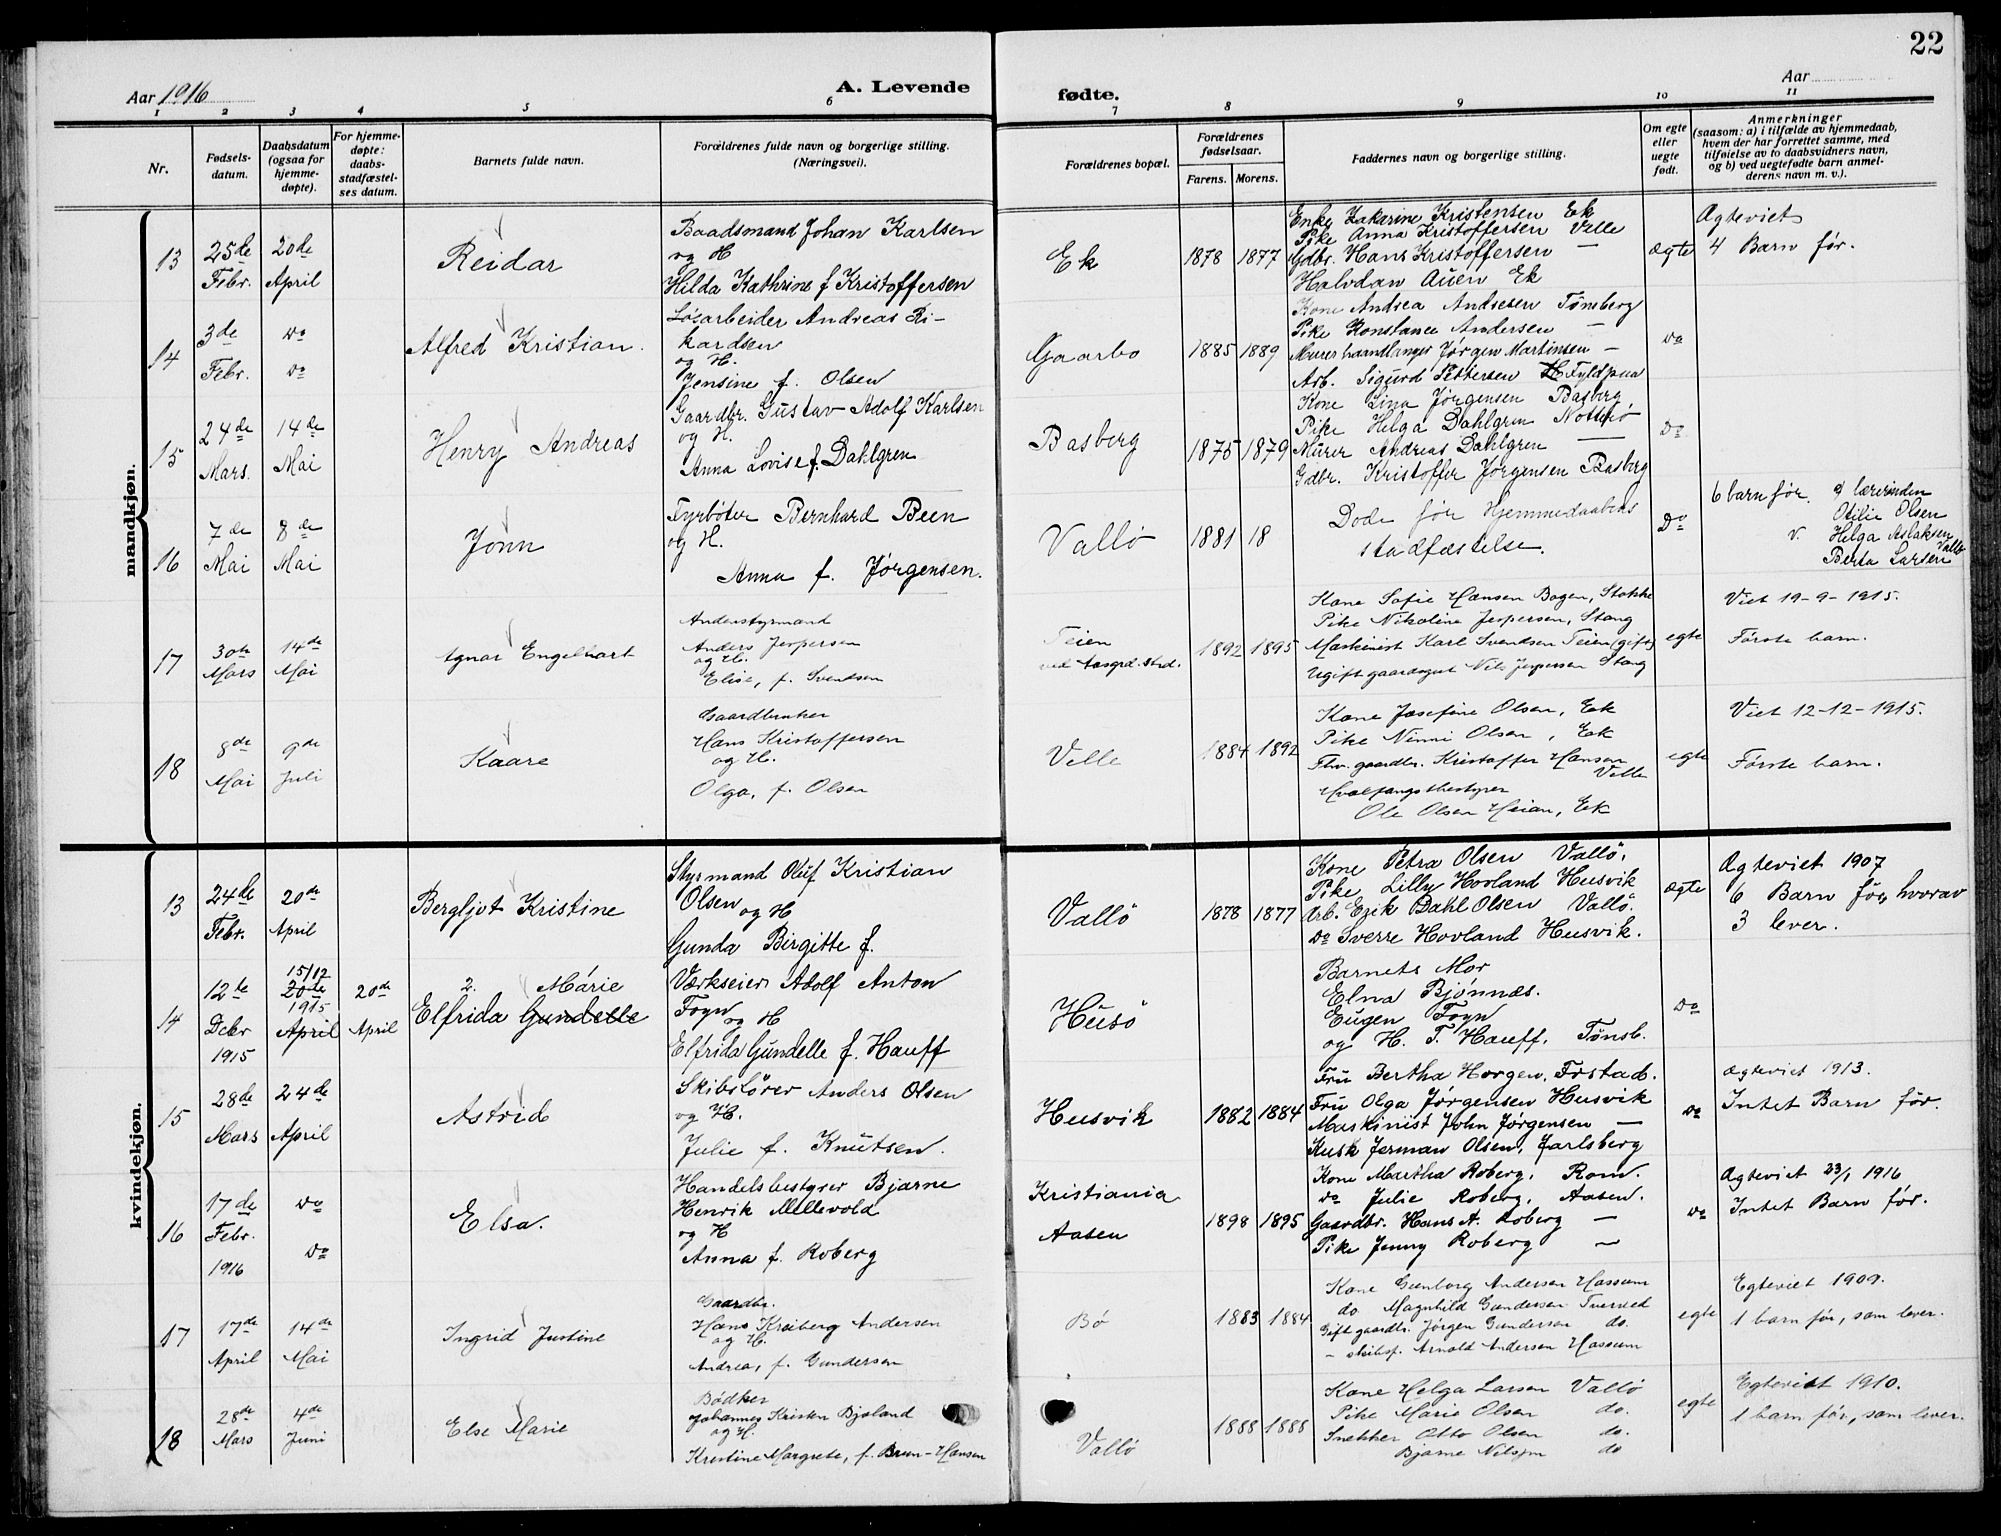 22
Aar 1916
A. Levende
fødte.
Aar
1 2 3 4 5 6 7 8 9 10 11
Nr.
Fødsels-
datum.
Daabsdatum
(ogsaa for
hjemme-
døpte).
For hjemme-
døpte:
daabs-
stadfæstel-
ses datum.
Barnets fulde navn.
Forældrenes fulde navn og borgerlige stilling.
(Næringsvei).
Forældrenes bopæl.
Forældrenes
fødselsaar.
Farens. Morens.
Faddernes navn og borgerlige stilling.
Om egte
eller
uegte
født.
Anmerkninger
(saasom: a) i tilfælde av hjemmedaab,
hvem der har forrettet samme, med
tilføielse av to daabsvidners navn,
og b) ved uegtefødte barn anmel-
derens navn m. v.).
mandkjøn.
13
25de
Febr.
20de
April
Reidar
Baadsmand Johan Karlsen
og H
Hilda Kathrine f Kristoffersen
Ek
1878 1877
Enke Zakarine Kristensen Ek
Pike Anna Kristoffersen Velle
Gdbr. Hans Kristoffersen —
Halvdan Auen Ek
Ægte
Ægteviet
4 Barn før.
14
3de
Febr.
do
do
Alfred Kristian.
Løsarbeider Andreas Ri-
kardsen
og H.
Jensine f. Olsen
Gaarbo
1885 1889
Kone Andrea Andsesen Tønsberg
Pike Konstance Andersen —
Murerhaandlanger Jørgen Martinsen —
Arb. Sigurd Pettersen Fyldpaa
do
15
24de
Mars.
14de
Mai
Henry Andreas
Gaardbr. Gustav Adolf Karlsen
og H.
Anna Lovise f. Dahlgren
Basberg
1875 1879
Kone Lina Jørgensen Basberg
Pike Helga Dahlgren Notterø
Murer Andreas Dahlgren —
Gdbr. Kristoffer Jørgensen Basberg
do
16
7de
Mai
8de
Mai
John
Fyrbøter Bernhard Been
og H.
Anna f. Jørgensen.
Vallø
1881 18
Døde før Hjemmedaabens
stadfæstelse.
Do
6 barn før. af lærerinden
Otilie Olsen
v. Helga Aslaksen
Vallø
Berta Larsen
17
30te
Mars
14de
Mai
Agnar Engelhart
Anderstyrmand
Anders Jespersen
og H.
Elise, f. Svendsen
Teien
ved Aasgrd. Strd.
1892 1895
Kone Sofie Hansen Bogen, Stokke
Pike Nikoline Jespersen, Stang
Maskinist Karl Svendsen Teien (gift)
Ugift gaardsgut Nils Jespersen Stang
egte
Viet 19-9-1915.
Første barn.
18
8de
Mai
9de
Juli
Kaare
Gaardbruker
Hans Kristoffersen
og H.
Olga, f. Olsen
Velle
1884 1892
Kone Josefine Olsen, Ek
Pike Ninni Olsen, Ek
Fhv. gaardbr. Kristoffer Hansen
Velle
Hvalfangstbestyrer
Ole Olsen Heian, Ek
egte
Viet 12-12-1915.
Første barn.
kvindekjøn.
13
24de
Febr.
20de
April
Bergljot Kristine
Styrmand Oluf Kristian
Olsen og H
Gunda Birgitte f.
Vallö
1878 1877
Kone Petra Olsen Vallö.
Pike Lilly Hovland Husvik
Arb. Erik Dahl Olsen Vallö.
do Sverre Hovland Husvik.
Ægte
Ægteviet 1907
6 Barn før, hvorav
3 lever.
14
12te
Debr
1915
15/12
20de
1915
April
20de
April
2. Marie
Elfrida Gundelle
Værkseier Adolf Anton
Foyn og H
Elfrida Gundelle f. Hauff
Husö
Barnets Mor
Elna Bjønnes.
Eugen Foyn
og H. T. Hauff. Tønsb.
do
15
28de
Mars
24de
April
Astrid
Skibsfører Anders Olsen
og H.
Julie f. Knutsen.
Husvik
1882 1884
Fru Bertha Horgen, Frstad.
Fru Olga Jørgensen Husvik
Maskinist John Jørgensen —
Kusk Jerman Olsen, Jarlsberg
do
Ægteviet 1913.
Intet Barn før.
16
17de
Febr.
1916
do
do
Elsa.
Handelsbestyrer Bjarne
Henrik Mellevold
og H
Anna f. Roberg
Kristiania
Aasen
1898 1895
Kone Martha Roberg, Rom.
do Julie Roberg, Aasen.
Gaardbr. Hans A. Roberg —
Pike Jenny Roberg —
do
Ægteviet 23/1 1916
Intet Barn før.
17
17de
April
14de
Mai
Ingrid Justine
Gaardbr.
Hans Kreiberg Andersen
og H.
Andrea, f. Gundersen
Bø
1883 1884
Kone Gunborg Andersen Hassum
do Magnhild Gundersen Tverved
Gift gaardbr. Jörgen Gundersen do.
— skibsf. Arnold Andersen Hassum
egte
Egteviet 1909.
1 barn før, som lever.
18
28de
Mars
4de
Juni
Else Marie
Bødker
Johannes Kristen Bjøland
og H.
Kristine Margrete, f. Brun-Hansen
Vallö
1888 1888
Kone Helga Larsen Vallö
Pike Marie Olsen do.
Snekker Otto Olsen do.
Bjarne Nilsen do
egte
Egteviet 1910.
1 barn før, som lever.